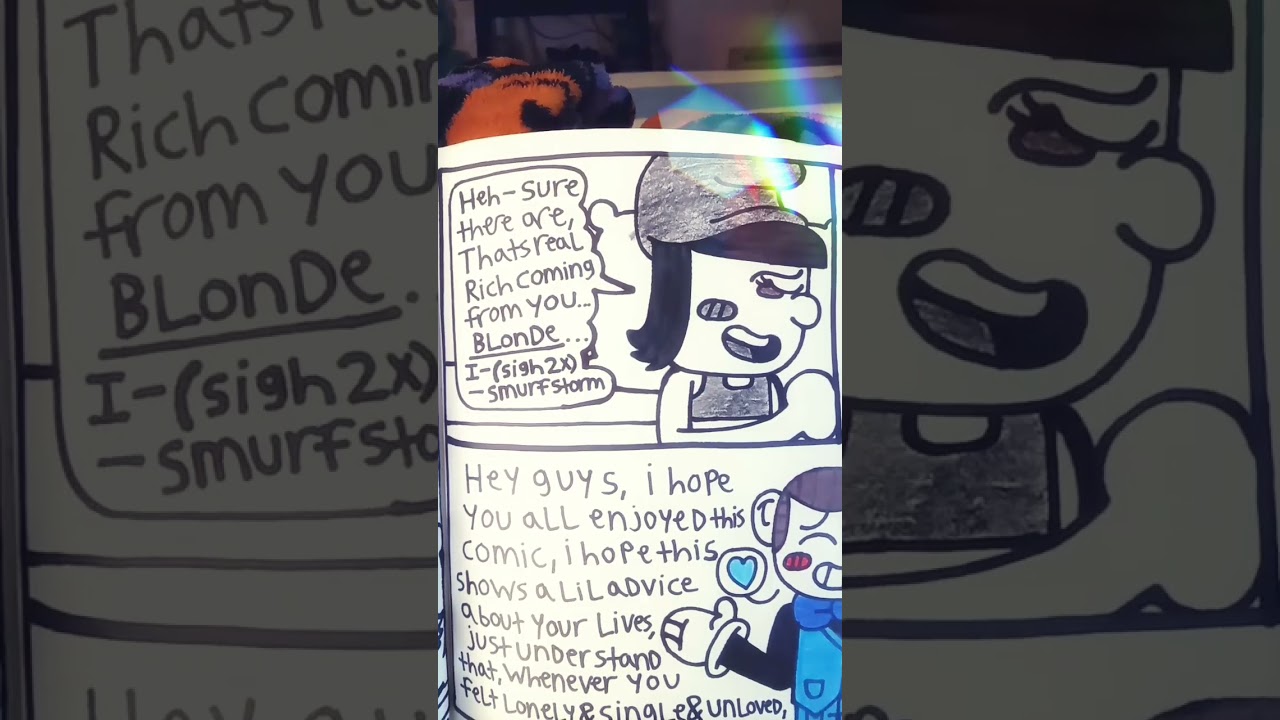 Heh-sure
there are,
Thats real
Rich coming
from you...
BLonDe...
I-(sigh 2x)
-smurfstorm
Hey guys, i hope
you all enjoyed this
comic, i hope this
shows a Lil advice
about your Lives,
just understand
that, whenever you
felt Lonely & single & unloved,